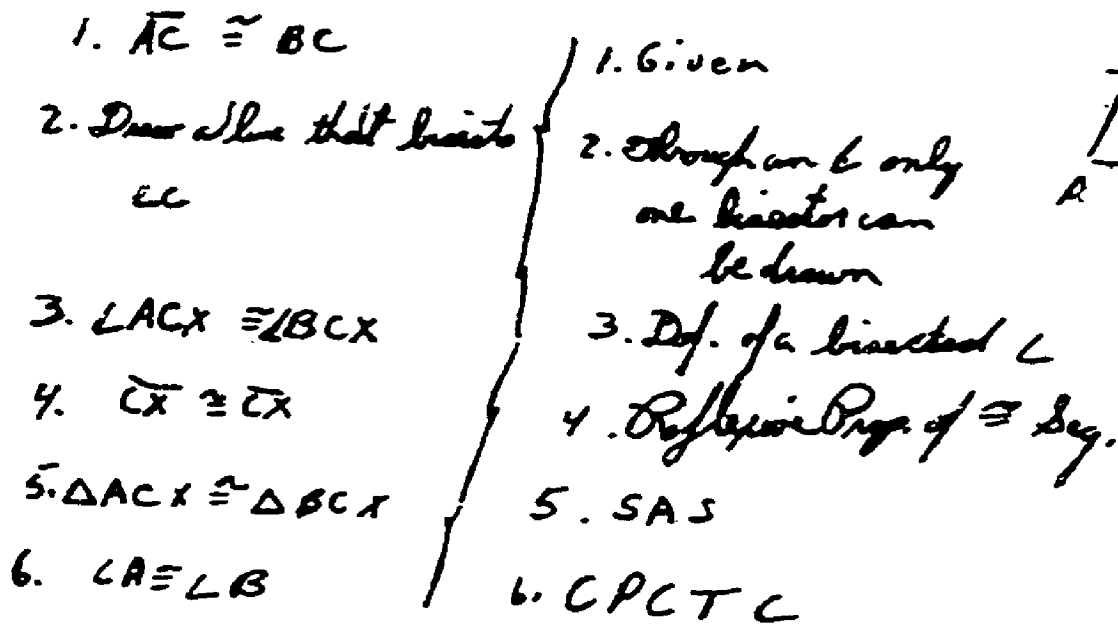 1. AC ≅ BC
2. Draw a line that bisects
∠C
3. ∠ACX ≅ ∠BCX
4. CX ≅ CX
5. △ACX ≅ △BCX
6. ∠A ≅ ∠B
1. Given
2. Through an ∠ only
one bisector can
be drawn
3. Def. of a bisected ∠
4. Reflexive Prop. of ≅ Seg.
5. SAS
6. CPCTC
A